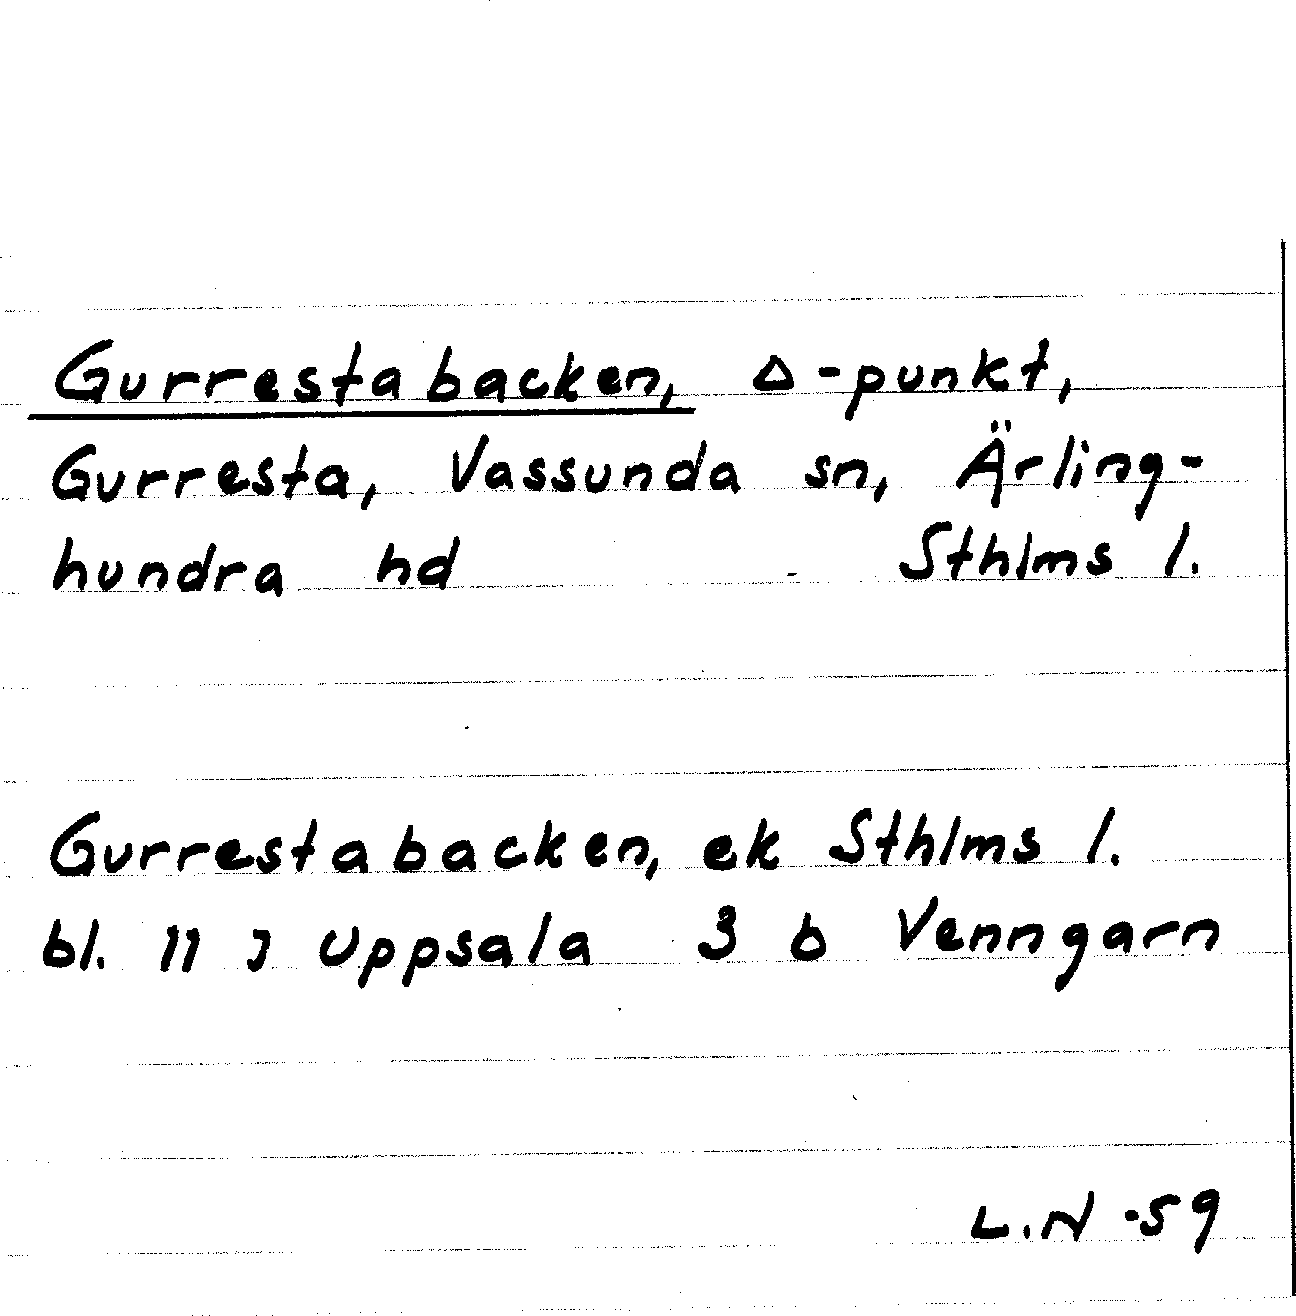 Gurrestabacken, Δ-punkt,
Gurresta, Vassunda sn, Ärling-
hundra hd Sthlms l.
Gurrestabacken, ek Sthlms l.
bl. 11 J Uppsala 3 b Venngarn
L.N -59